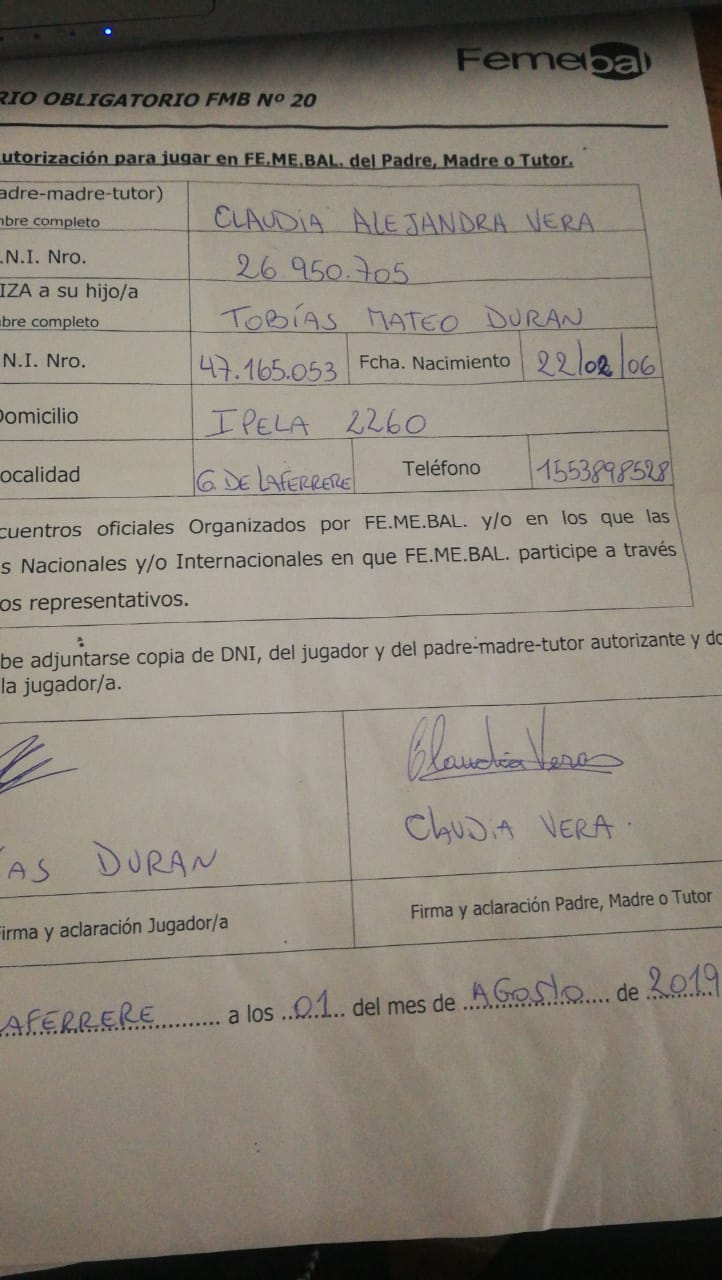 Femebal
RIO OBLIGATORIO FMB Nº 20
utorización para jugar en FE.ME.BAL. del Padre, Madre o Tutor.
adre-madre-tutor)
mbre completo
CLAUDIA ALEJANDRA VERA
.N.I. Nro.
26.950.705
IZA a su hijo/a
mbre completo
TOBÍAS MATEO DURAN
.N.I. Nro.
47.165.053
Fcha. Nacimiento
22/02/06
Domicilio
IPELA 2260
ocalidad
G. DE LAFERRERE
Teléfono
1553898528
cuentros oficiales Organizados por FE.ME.BAL. y/o en los que las
s Nacionales y/o Internacionales en que FE.ME.BAL. participe a través
os representativos.
be adjuntarse copia de DNI, del jugador y del padre-madre-tutor autorizante y do
la jugador/a.
Claudia Vera
ÍAS DURAN
CLAUDIA VERA.
irma y aclaración Jugador/a
Firma y aclaración Padre, Madre o Tutor
AFERRERE.......... a los ..01.. del mes de ...AGOSTO.... de ..2019